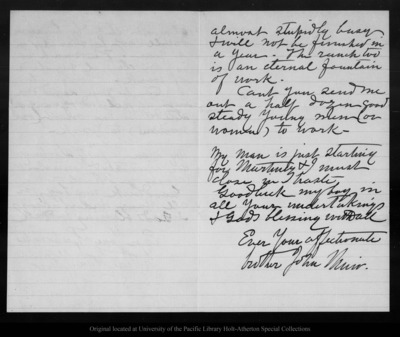 almost stupidly busy
& will not be finished in
a year. The ranch too
is an eternal fountain
of work.
Cant you send me
out a half dozen good
steady young men (or
women) to work—
My man is just starting
for Martinez & I must
close in haste
Goodluck my boy in
all your undertakings
& Gods blessing in all
Ever your affectionate
brother John Muir.
Original located at University of the Pacific Library Holt-Atherton Special Collections